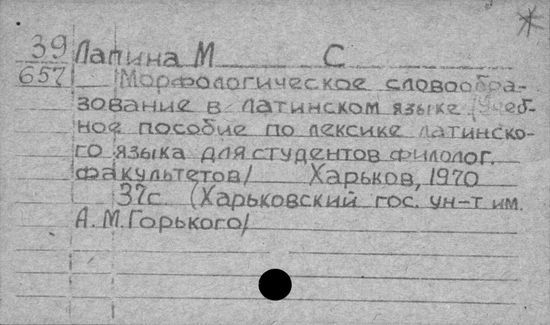 39 Лапина М С
657 Морфологическое словообра-
зование в латинском языке /Учеб-
ное пособие по лексике латинско-
го языка для студентов филолог.
факультетов/ Харьков, 1970
37с. (Харьковский гос. ун-т им.
А.М.Горького/